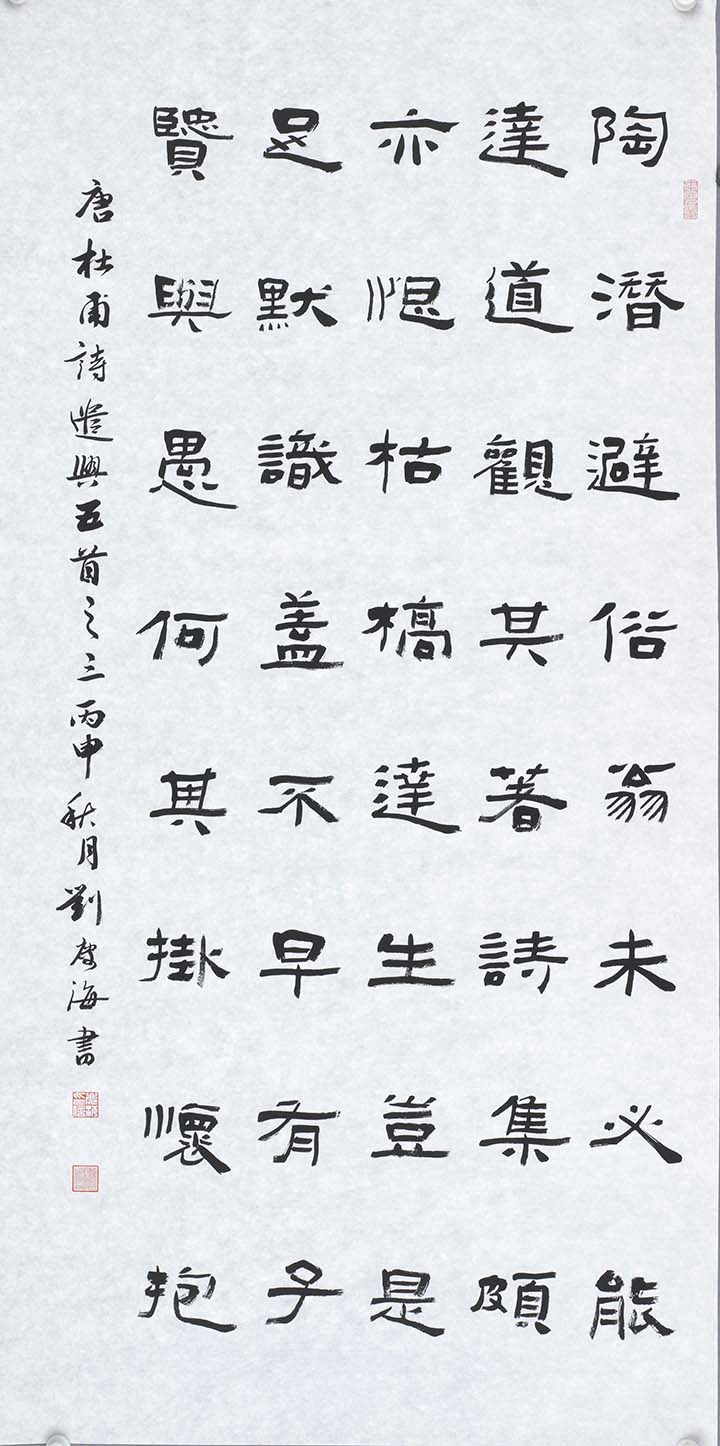 陶潛避俗翁未必能
達道觀其著詩集頗
亦恨枯槁達生豈是
足默識盖不早有子
賢與愚何其掛懷抱
唐杜甫詩遣興五首之三丙申秋月劉海書